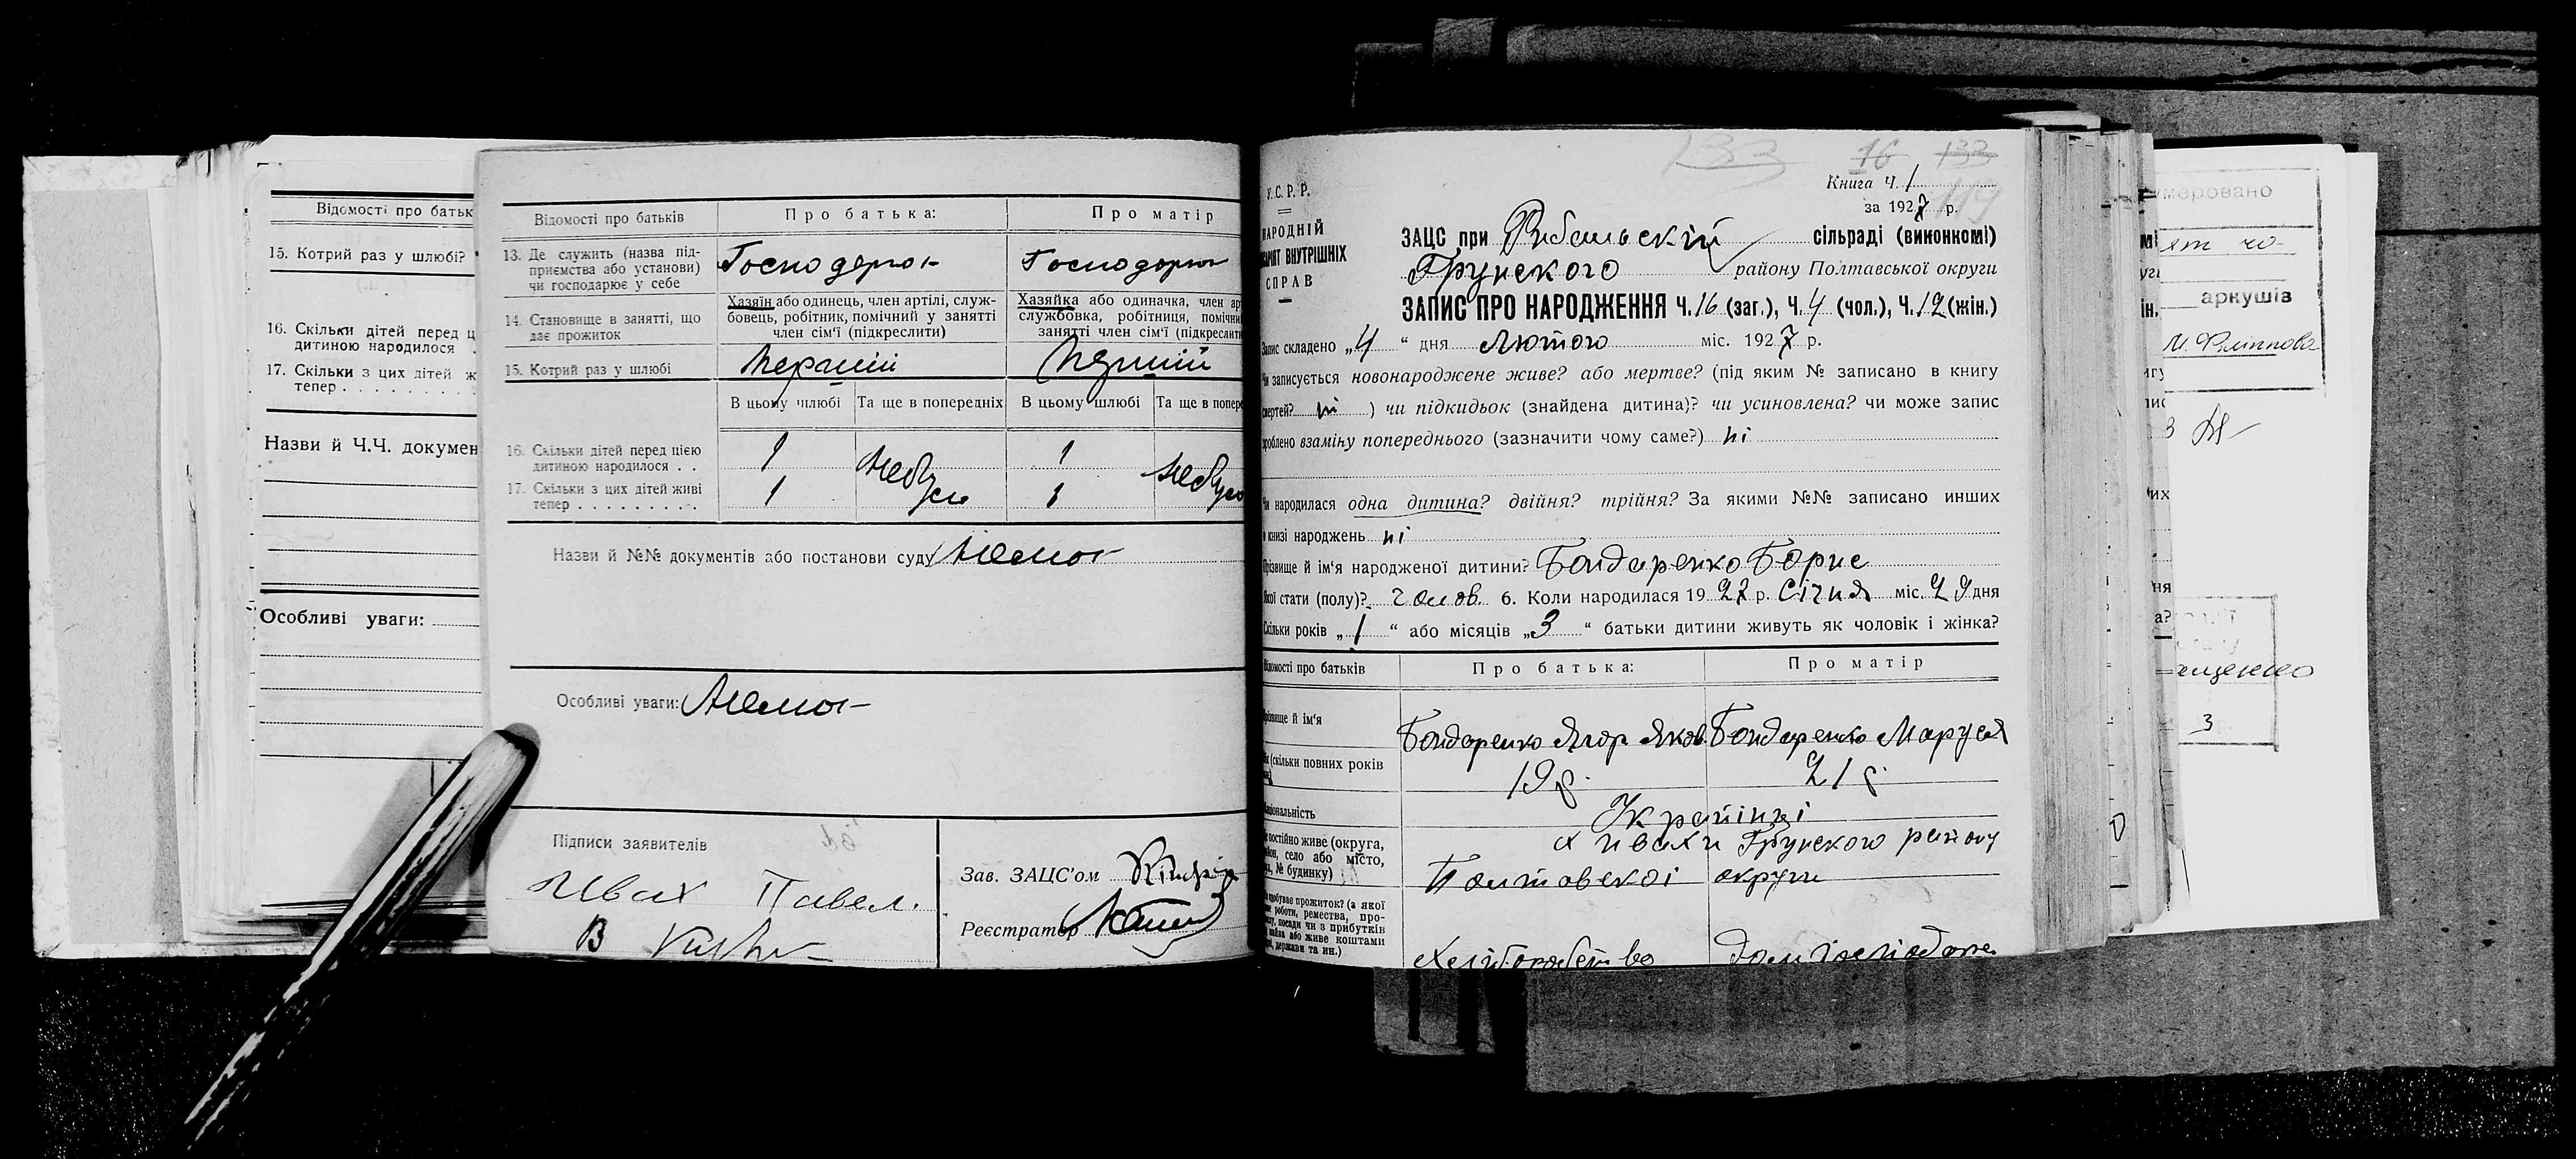 Відомості про батьк
15. Котрий раз у шлюбі?
16. Скільки дітей перед ц
дитиною народилося .
17. Скільки з цих дітей ж
тепер . . . . . . . . .
Назви й Ч.Ч. докумен
Особливі уваги:
Відомості про батьків
Про батька:
Про матір
13. Де служить (назва під-
приємства або установи)
чи господарює у себе
14. Становище в занятті, що
дає прожиток
Хазяїн або одинець, член артілі, служ-
бовець, робітник, помічний у занятті
член сім'ї (підкреслити)
Хазяйка або одиначка, член ар
службовка, робітниця, помічни
занятті член сім'ї (підкреслити
15. Котрий раз у шлюбі
Перший
Перший
В цьому шлюбі Та ще в попередніх В цьому шлюбі Та ще в попере
16. Скільки дітей перед цією
дитиною народилося . .
1 1
17. Скільки з цих дітей живі
тепер . . . . . . . . .
1 1
Небуло Небуло
Назви й №№ документів або постанови суду Нема
Особливі уваги: Нема
Підписи заявителів
Ивах Павел.
Зав. ЗАЦС'ом
Реєстратор
133 16 133
119
У.С.Р.Р.
НАРОДНІЙ
ВНУТРІШНІХ
СПРАВ
Книга Ч. 1
за 1927 р.
ЗАЦС при Рибальскій сільраді (виконкомі)
Грунского району Полтавської округи
ЗАПИС ПРО НАРОДЖЕННЯ Ч. 16 (заг.), Ч. 4 (чол.), Ч. 12 (жін.)
Запис складено „4“ дня Лютого міс. 1927 р.
Чи записується новонароджене живе? або мертве? (під яким № записано в книгу
смертей? ні ) чи підкидьок (знайдена дитина)? чи усиновлена? чи може запис
зроблено взаміну попереднього (зазначити чому саме?) ні
Чи народилася одна дитина? двійня? трійня? За якими №№ записано инших
в книзі народжень ні
Прізвище й ім'я народженої дитини? Бондаренко Борис
Якої стати (полу)? Чолов. 6. Коли народилася 1927 р. Січня міс. 29 дня
Скільки років „1“ або місяців „3“ батьки дитини живуть як чоловік і жінка?
Відомості про батьків
Про батька:
Про матір
Прізвище й ім'я
Бондаренко Ягор Яков. Бондаренко Маруся
(скільки повних років
19 р. 21 р.
Національність
Українці
постійно живе (округа,
село або місто,
№ будинку)
х Ивахи Грунского району
Полтавскоі округи
прожиток? (з якої
роботи, ремества, про-
посади чи з прибутків
або живе коштами
держави та ин.)
хліборобство
меровано
аркушів